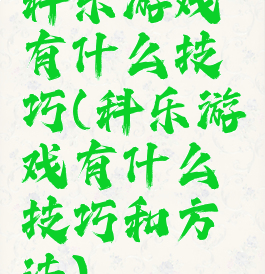 科乐游戏
有什么技
巧(科乐游
戏有什么
技巧和方
法)